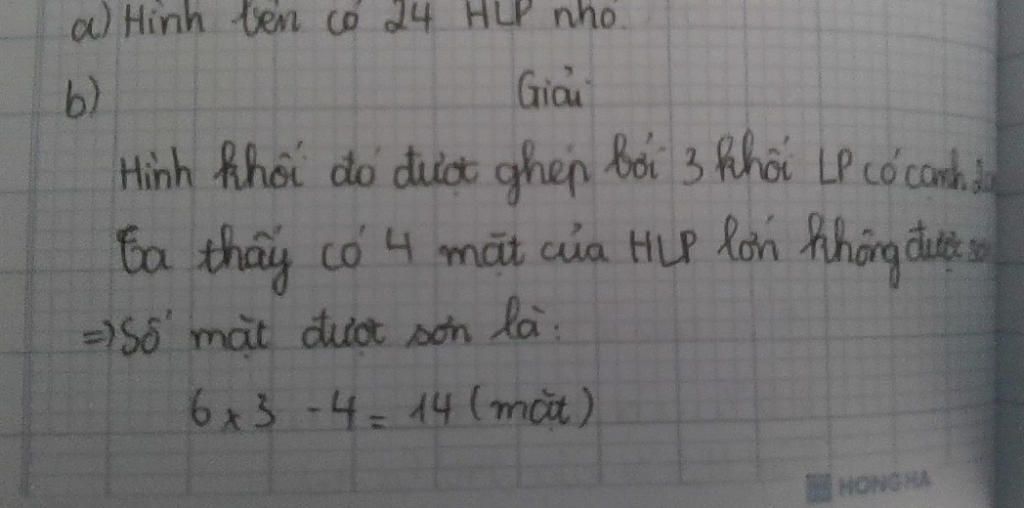 a) Hình trên có 24 HLP nhỏ.
b) Giải
Hình khối đó được ghép bởi 3 khối LP có cạnh
Ta thấy có 4 mặt của HLP lớn không được
=> Số mặt được sơn là:
6 x 3 - 4 = 14 (mặt)
HONG HA